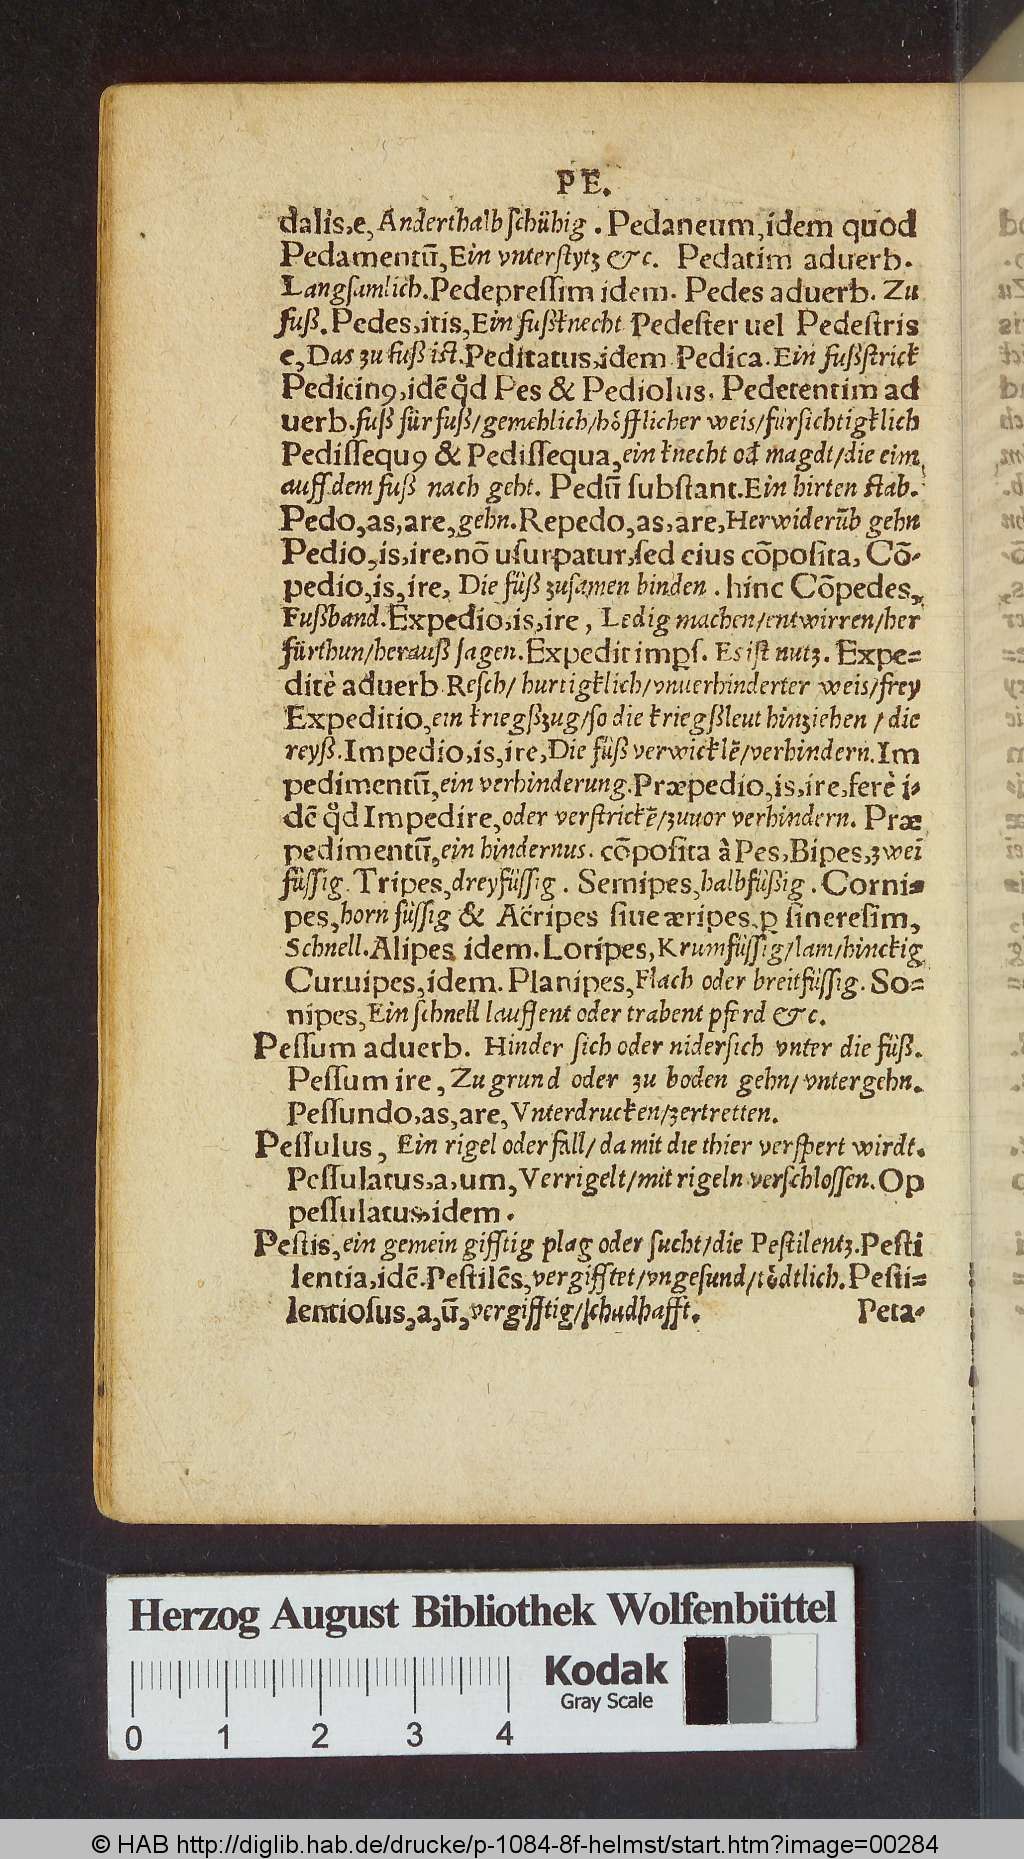 PE.
dalis,e, Anderthalb ſchühig. Pedaneum, idem quod
Pedamentū, Ein vnterſtytz &c. Pedatim aduerb.
Langſamlich. Pedepreſſim idem. Pedes aduerb. Zu
fuß. Pedes, itis, Ein fußknecht Pedeſter uel Pedeſtris
e, Das zu fuß iſt. Peditatus, idem Pedica. Ein fußſtrick
Pedicinꝰ, idē qd̄ Pes & Pediolus. Pedetentim ad
uerb. fuß für fuß/ gemehlich/ höfflicher weis/ fürſichtigklich
Pediſſequꝰ & Pediſſequa, ein knecht od̄ magdt/ die eim
auff dem fuß nach geht. Pedū ſubſtant. Ein hirten ſtab.
Pedo, as, are, gehn. Repedo, as, are, Herwiderūb gehn
Pedio, is, ire, nō uſurpatur, ſed eius cōpoſita, Cō-
pedio, is, ire, Die füß zuſamen binden. hinc Cōpedes,
Fußband. Expedio, is, ire, Ledig machen/ entwirren/ her
fürthun/ herauß ſagen. Expedit imp̱ſ. Es iſt nutz. Expe=
ditè aduerb Reſch/ hurtigklich/ vnuerhinderter weis/ frey
Expeditio, ein kriegßzug/ ſo die kriegßleut hinziehen / die
reyß. Impedio, is, ire, Die füß verwicklē/ verhindern. Im
pedimentū, ein verhinderung. Præpedio, is, ire, ferè i-
dē qd̄ Impedire, oder verſtrickē/ zuuor verhindern. Præ
pedimentū, ein hindernus. cōpoſita à Pes, Bipes, zwei
füſſig. Tripes, dreyfüſſig. Semipes, halbfüßig. Corni=
pes, horn füſſig & Aëripes ſiue æripes, p̱ ſinereſim,
Schnell. Alipes idem. Loripes, Krumfüſſig/ lam/ hinckig
Curuipes, idem. Planipes, Flach oder breitfüſſig. So=
nipes, Ein ſchnell lauffent oder trabent pferd &c.
Peſſum aduerb. Hinder ſich oder niderſich vnter die füß.
Peſſum ire, Zu grund oder zu boden gehn/ vntergehn.
Peſſundo, as, are, Vnterdrucken/ zertretten.
Peſſulus, Ein rigel oder fall/ damit die thier verſpert wirdt.
Peſſulatus, a, um, Verrigelt/ mit rigeln verſchloſſen. Op
peſſulatus, idem.
Peſtis, ein gemein gifftig plag oder ſucht/ die Peſtilentz. Peſti
lentia, idē. Peſtilēs, vergifftet/ vngeſund/ tödtlich. Peſti=
lentioſus, a, ū, vergifftig/ ſchadhafft. Peta-
Herzog August Bibliothek Wolfenbüttel
Kodak
Gray Scale
0 1 2 3 4
© HAB http://diglib.hab.de/drucke/p-1084-8f-helmst/start.htm?image=00284